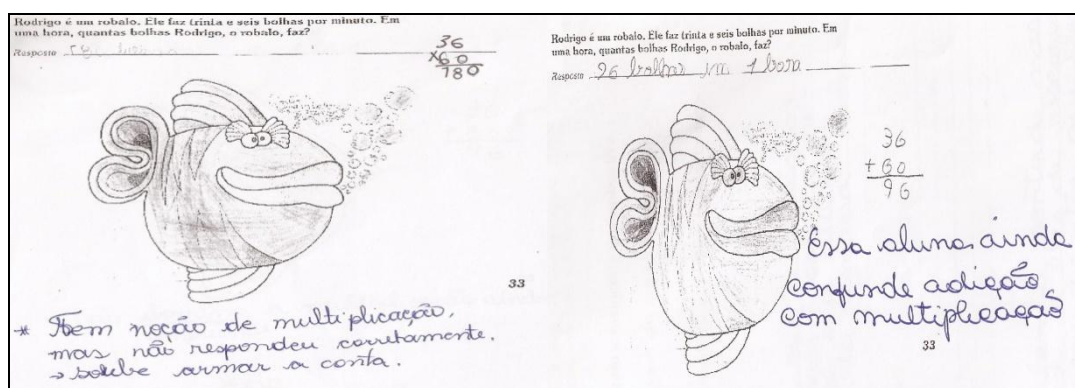 Rodrigo é um robalo. Ele faz trinta e seis bolhas por minuto. Em
uma hora, quantas bolhas Rodrigo, o robalo, faz?
Resposta
36
x60
780
33
* Tem noção de multiplicação,
mas não respondeu corretamente.
→ soube armar a conta.
Rodrigo é um robalo. Ele faz trinta e seis bolhas por minuto. Em
uma hora, quantas bolhas Rodrigo, o robalo, faz?
Resposta 96 bolhas em 1 hora
36
+ 60
96
Essa aluna ainda
confunde adição
com multiplicação
33